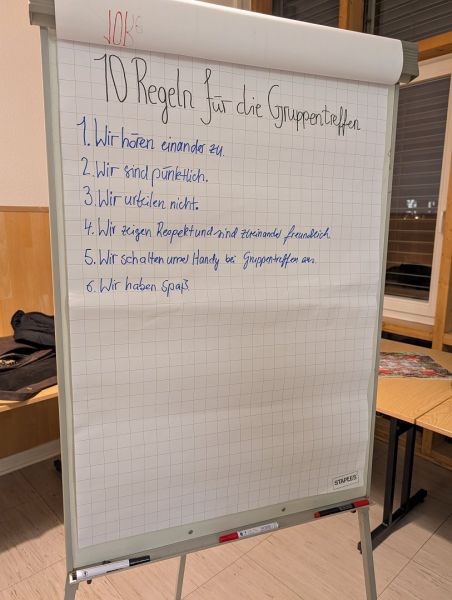 10 Regeln für die Gruppentreffen
1. Wir hören einander zu.
2. Wir sind pünktlich.
3. Wir urteilen nicht.
4. Wir zeigen Respekt und sind zueinander freundlich
5. Wir schalten unser Handy bei Gruppentreffen aus.
6. Wir haben Spaß
STAPLES